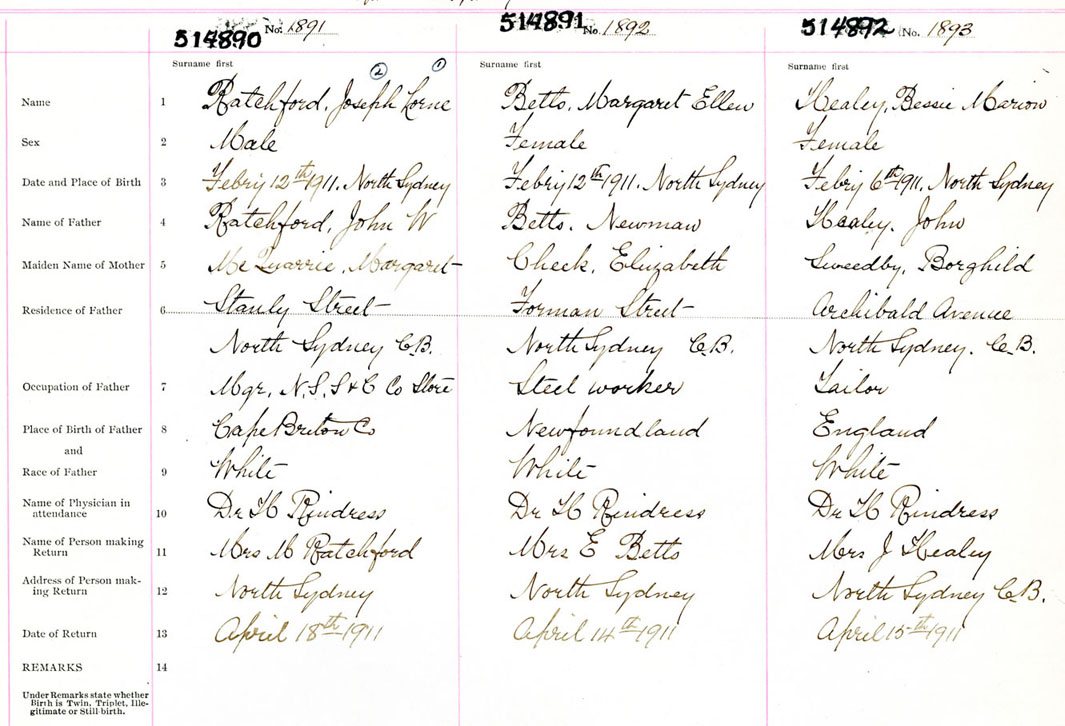 514890 No. 1891 514891 No. 1892 514892 No. 1893
Surname first Surname first Surname first
② ①
Name 1 Ratchford, Joseph Lorne Betts, Margaret Ellen Healey, Bessie Marion
Sex 2 Male Female Female
Date and Place of Birth 3 Febry 12th 1911. North Sydney Febry 12th 1911. North Sydney Febry 6th 1911. North Sydney
Name of Father 4 Ratchford, John W Betts. Newman Healey. John
Maiden Name of Mother 5 Mc Quarrie, Margaret Cheek, Elizabeth Sweedby, Borghild
Residence of Father 6 Stanly Street Forman Street Archibald Avenue
North Sydney C.B. North Sydney C.B. North Sydney. C.B.
Occupation of Father 7 Mgr, N.S.S & C Co Store Steel worker Tailor
Place of Birth of Father 8 Cape Breton Co Newfoundland England
and
Race of Father 9 White White White
Name of Physician in
attendance 10 Dr H Rindress Dr H Rindress Dr H Rindress
Name of Person making
Return 11 Mrs M Ratchford Mrs E Betts Mrs J Healey
Address of Person mak-
ing Return 12 North Sydney North Sydney North Sydney C.B.
Date of Return 13 April 18th 1911 April 14th 1911 April 15th 1911
REMARKS 14
Under Remarks state whether
Birth is Twin, Triplet, Ille-
gitimate or Still-birth.